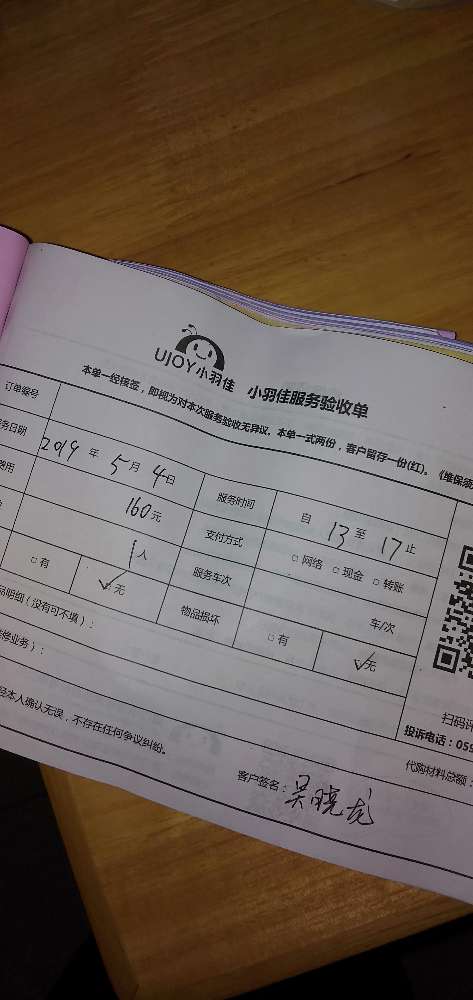 UJOY小羽佳 小羽佳服务验收单
本单一经核签，即视为对本次服务验收无异议。本单一式两份，客户留存一份(红)。《维保
订单编号
务日期 2019 年 5 月 4 日 服务时间 自 13 至 17 止
费用 160 元 支付方式 □ 网络 □ 现金 □ 转账
1 人 服务车次 车/次
□ 有 ☑ 无 物品损坏 □ 有 ☑ 无
品明细（没有可不填）：
修业务）：
扫码评
投诉电话：059
经本人确认无误，不存在任何争议纠纷。
代购材料总额：
客户签名：吴晓龙